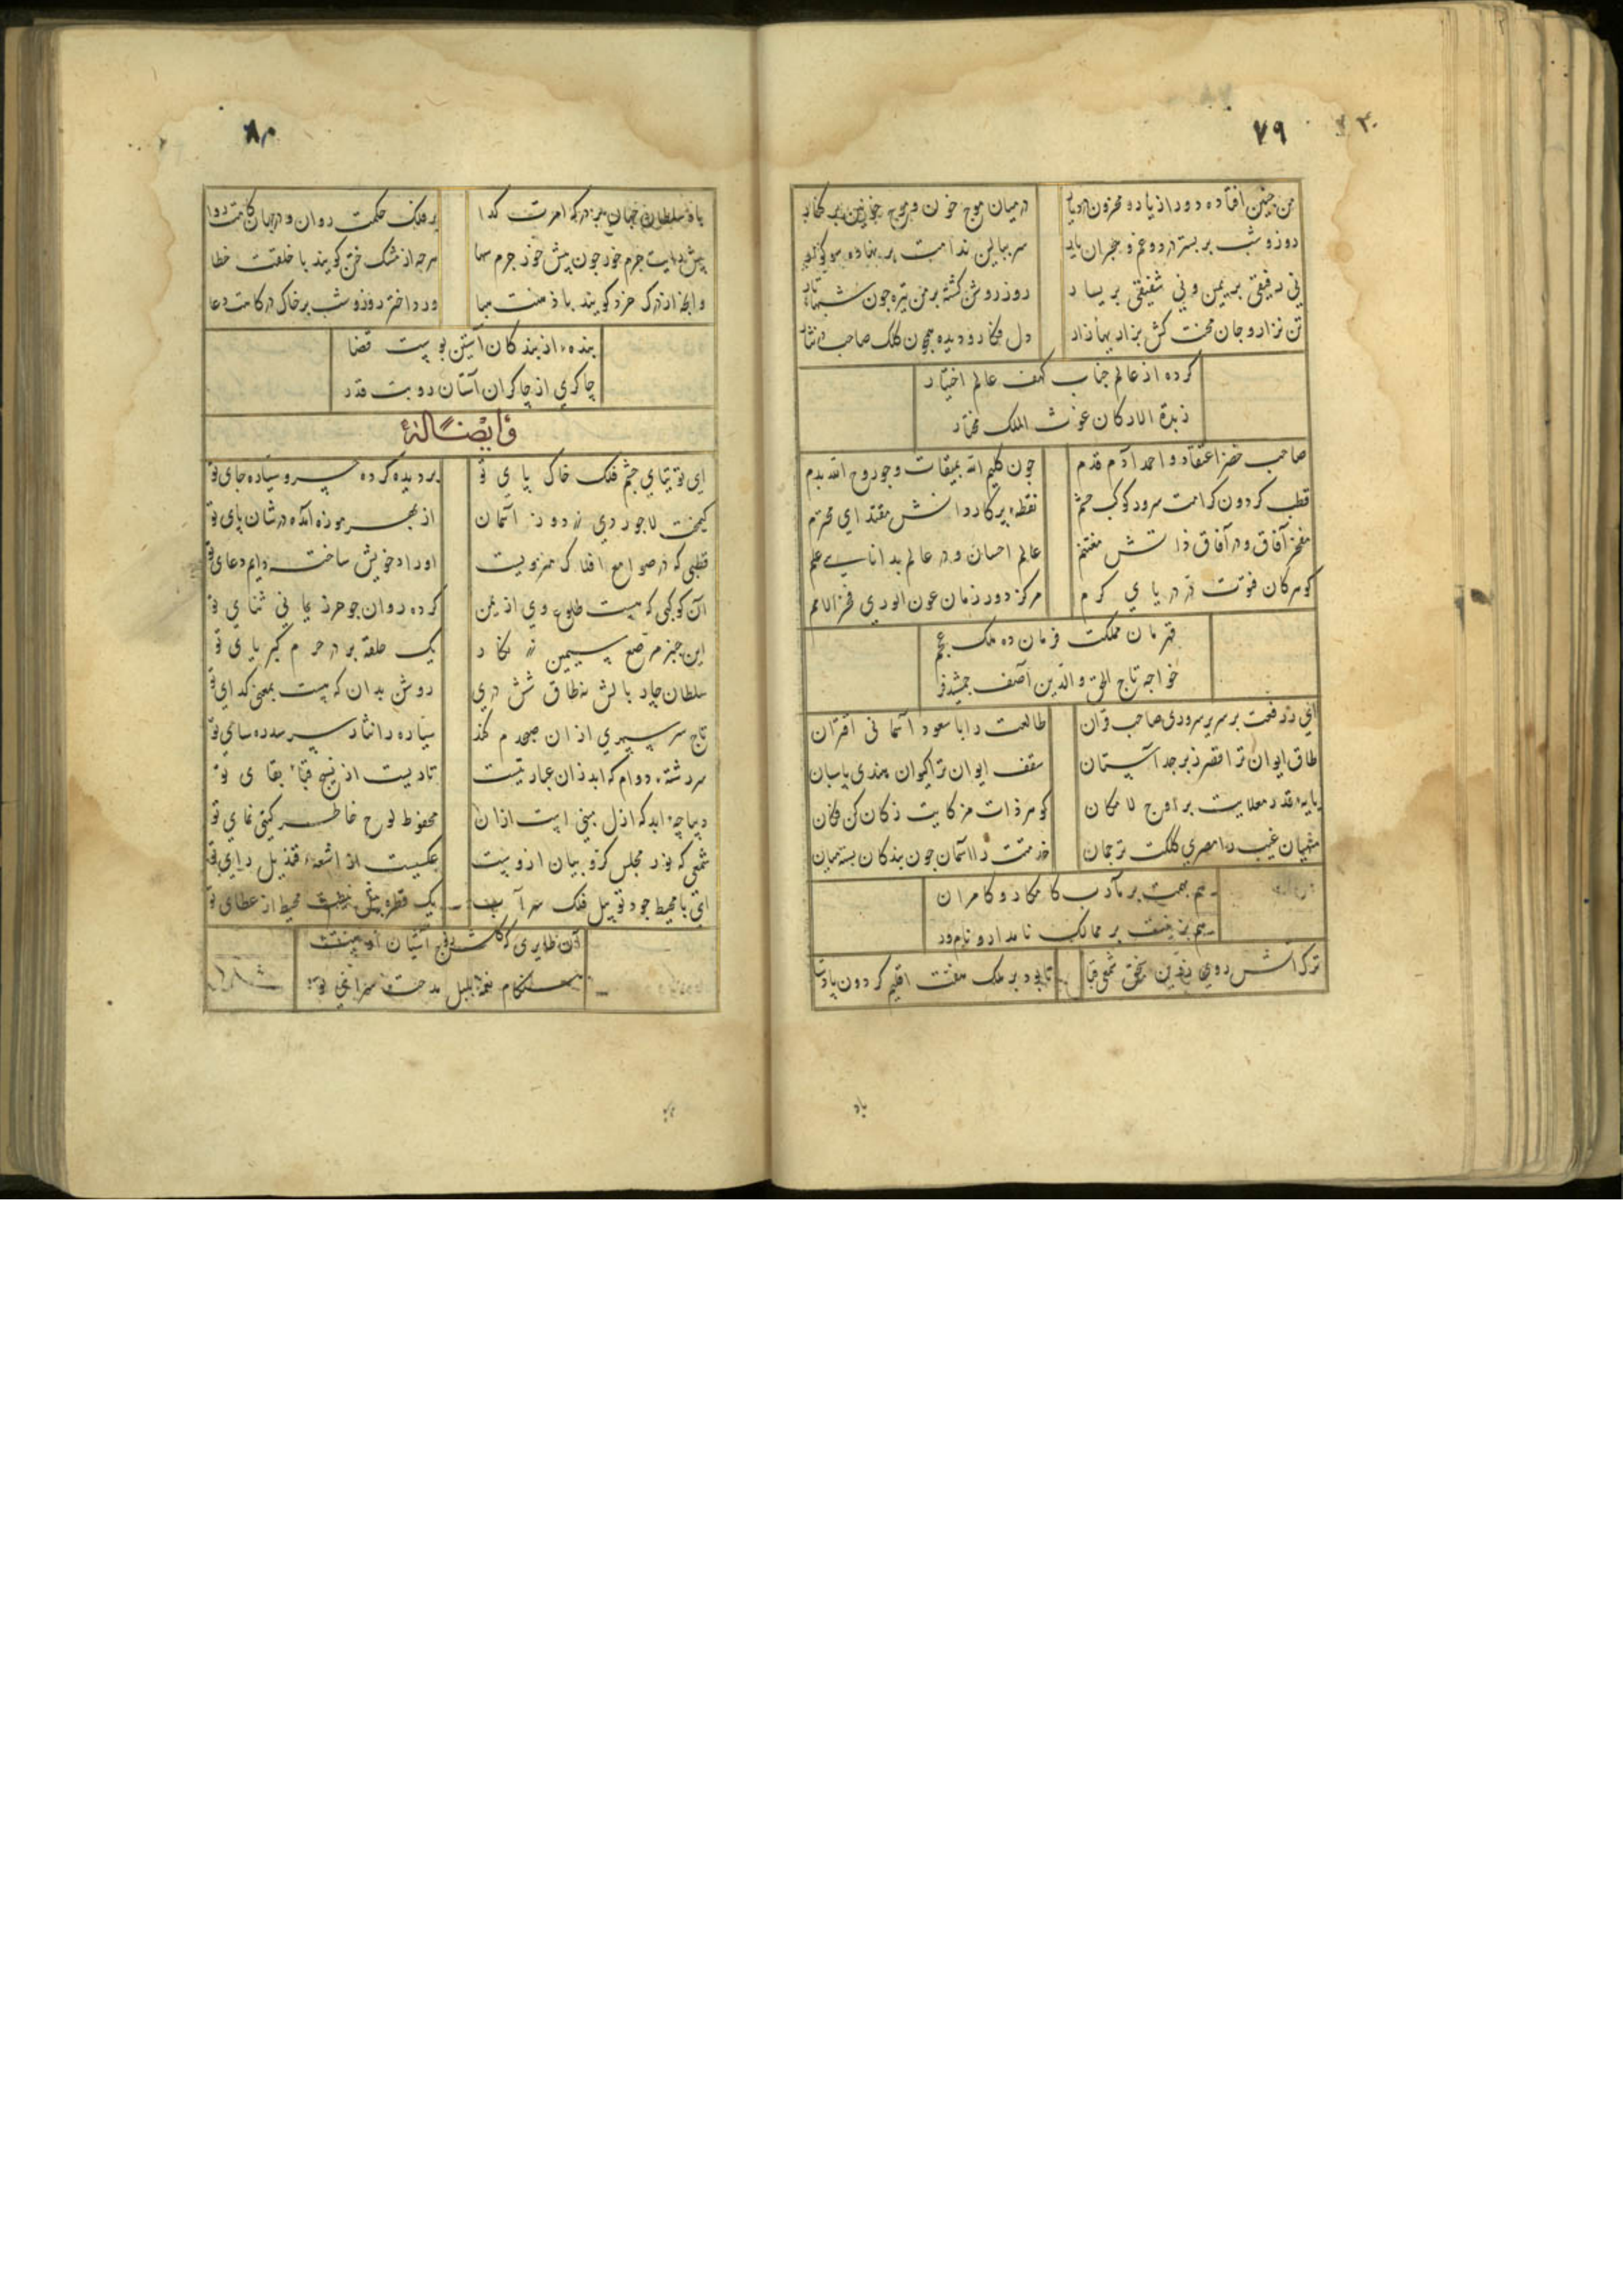 ۷۹
من چنین افتاده دور از یار و محزون
در میان موج خون و موج خونین بر کنار
روز و شب بر بستر درد و غم و هجران یار
سر ببالین ندامت بر نهاده
نی رفیقی بر یمین و نی شفیقی بر یسار
روز روشن کشته بر من تیره چون
تن نزار و جان محنت کش بزاریها زار
دل فکار و دیده همچون کلک صاحب
کرده از عالم جناب کهف عالم اختیار
زبدة الارکان غوث الملک
صاحب خضر اعتقاد و احمد آدم قدم
چون کلیم الله بمیقات و چو روح الله بدم
قطب کردون کرامت سرور کوکب حشم
نقطهٔ پرکار دانش مقتدای محترم
مفخر آفاق و در آفاق ذاتش مغتنم
عالم احسان و در عالم بدانایی علم
کوهر کان فتوت در دریای کرم
مرکز دور زمان عون الوری فخر الامم
قهرمان مملکت فرمان ده ملک عجم
خواجه تاج الحق والدین آصف جمشید فر
ای ز رفعت بر سریر سروری صاحب قران
طالعت را با سعود آسمانی اقتران
طاق ایوان ترا قصر زبرجد آستان
سقف ایوان ترا کیوان هندی پاسبان
پایهٔ قدر معلایت بر اوج لا مکان
کوهر ذات مزکایت ز کان کن فکان
منهیان غیب را مصری کلکت ترجمان
خدمتت را آسمان چون بندکان بسته میان
هم بهمت بر مآرب کامکار و کامران
هم برفعت بر ممالک نامدار و نامور
ترک آتش روی زرین شمعی قبا
تا بود بر ملک هفت اقلیم کردون پادشا
باد
۸۰
باد سلطان جهان بر درکه امرت کدا
بر فلک حکمت روان و در جهان کامت روا
پیش رایت جرم خور چون پیش خور جرم سها
هرچه از مشک ختن کویند با خلقت خطا
وانچه از درک خرد کویند با ذهنت هبا
ورد اختر روز و شب بر خاک درکاهت دعا
بندهٔ از بندکان آستین بوست قضا
چاکری از چاکران آستان روبت قدر
وایضاً له
ای توتیای چشم فلک خاک پای تو
بر دیده کرده سیاره جای تو
کیمخت لاجوردی زردوز آسمان
از بهر موزه آمده در شان پای تو
قطبی که در صوامع افلاک منزویست
اوراد خویش ساخته دایم دعای تو
آن کوکبی که هست طلوع وی از یمن
کرده روان چو حرز یمانی ثنای تو
این چنبر مرصع سیمین زرنکار
یک حلقه بر در حرم کبریای تو
سلطان چار بالش نه طاق شش دری
روشن بدان که هست بمعنی کدای تو
تاج سر سپهری از ان صبحدم کند
سیاره را نثار سپر سده سای تو
سر رشتهٔ دوام که ابد زان عبارتیست
تاریست از نسیج قبای بقای تو
دیباچهٔ ابد که ازل مبنی است ازان
محفوظ لوح خاطر کیتی نمای تو
شمعی که نور مجلس کروبیان ازوست
عکسیست از اشعهٔ قندیل رای تو
ای با محیط جود تو پیل فلک سرآب
یک قطره نیست محیط از عطای تو
آن طایری که آشیان
هنکام نغمه بلبل مدحت سرای تو